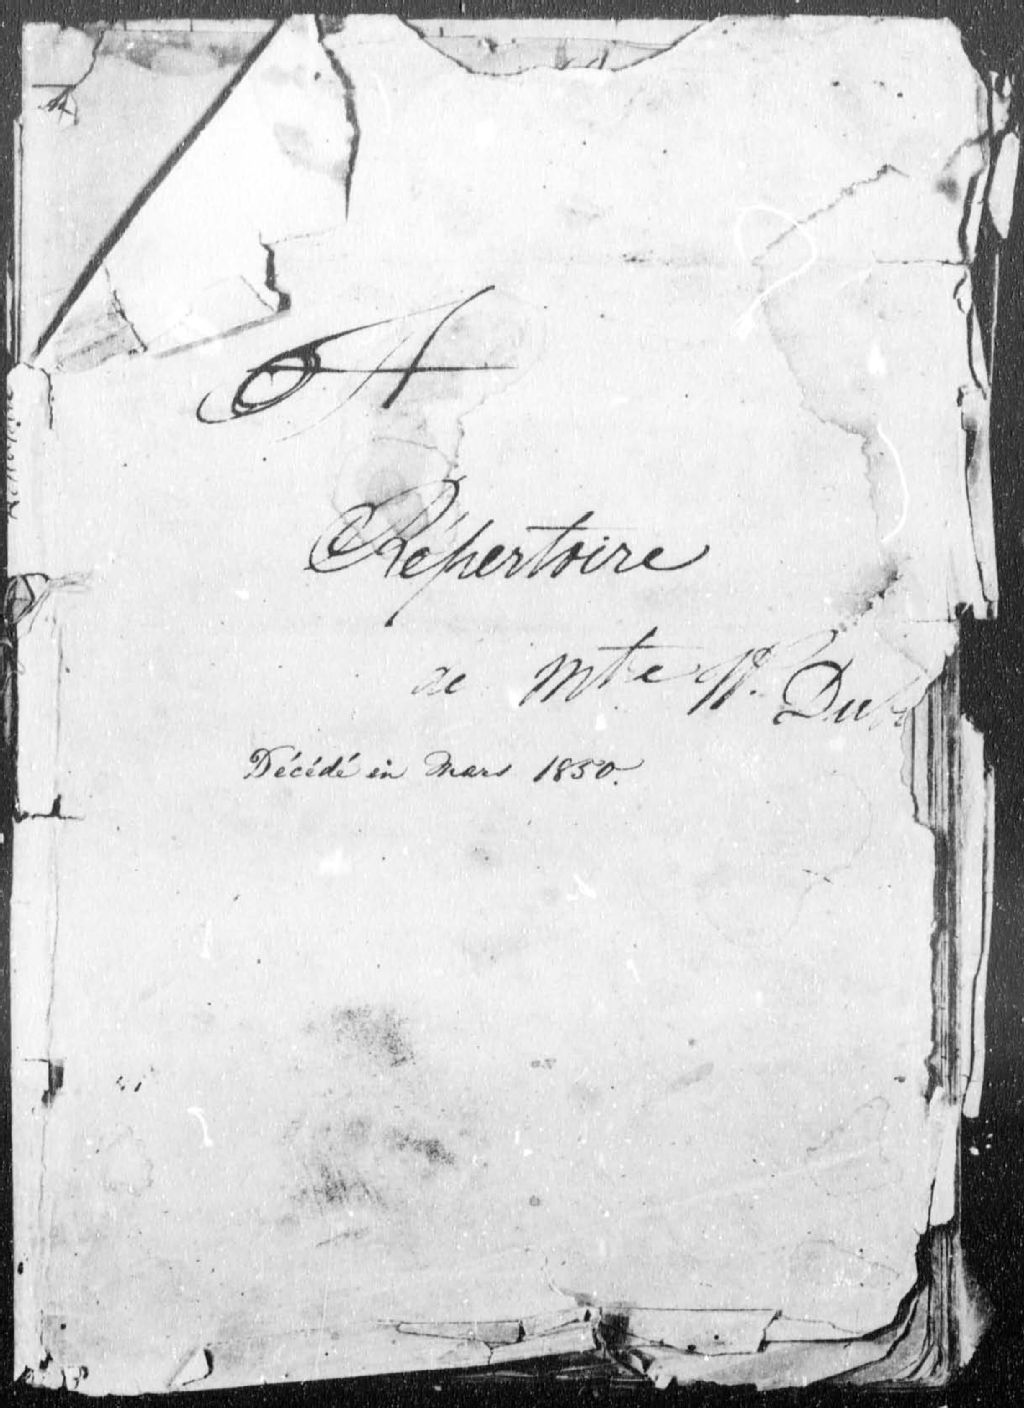 A
Répertoire
de Mtre P. Dub
Décédé en Mars 1850.